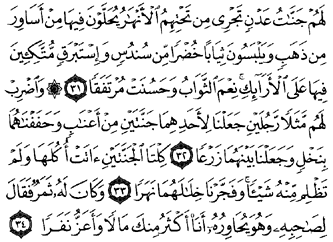 لَهُمْ جَنَّٰتُ عَدْنٍ تَجْرِى مِن تَحْتِهِمُ ٱلْأَنْهَٰرُ يُحَلَّوْنَ فِيهَا مِنْ أَسَاوِرَ
مِن ذَهَبٍ وَيَلْبَسُونَ ثِيَابًا خُضْرًا مِّن سُندُسٍ وَإِسْتَبْرَقٍ مُّتَّكِـِٔينَ
فِيهَا عَلَى ٱلْأَرَآئِكِ ۚ نِعْمَ ٱلثَّوَابُ وَحَسُنَتْ مُرْتَفَقًا ﴿٣١﴾ ۞ وَٱضْرِبْ
لَهُم مَّثَلًا رَّجُلَيْنِ جَعَلْنَا لِأَحَدِهِمَا جَنَّتَيْنِ مِنْ أَعْنَٰبٍ وَحَفَفْنَٰهُمَا
بِنَخْلٍ وَجَعَلْنَا بَيْنَهُمَا زَرْعًا ﴿٣٢﴾ كِلْتَا ٱلْجَنَّتَيْنِ ءَاتَتْ أُكُلَهَا وَلَمْ
تَظْلِم مِّنْهُ شَيْـًٔا ۚ وَفَجَّرْنَا خِلَٰلَهُمَا نَهَرًا ﴿٣٣﴾ وَكَانَ لَهُۥ ثَمَرٌ فَقَالَ
لِصَٰحِبِهِۦ وَهُوَ يُحَاوِرُهُۥٓ أَنَا۠ أَكْثَرُ مِنكَ مَالًا وَأَعَزُّ نَفَرًا ﴿٣٤﴾